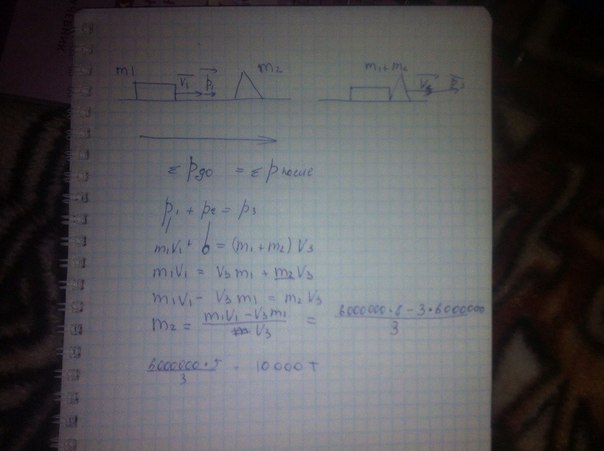 m1 V1 p1 m2 m1+m2 V3 p3
Σ Pдо = Σ P после
p1 + p2 = p3
m1V1 + 0 = (m1+m2) V3
m1V1 = V3 m1 + m2 V3
m1V1 - V3 m1 = m2 V3
m2 = m1V1 - V3m1 / V3 = 6000000 · 8 - 3 · 6000000 / 3
6000000 · 5 / 3 = 10000 т